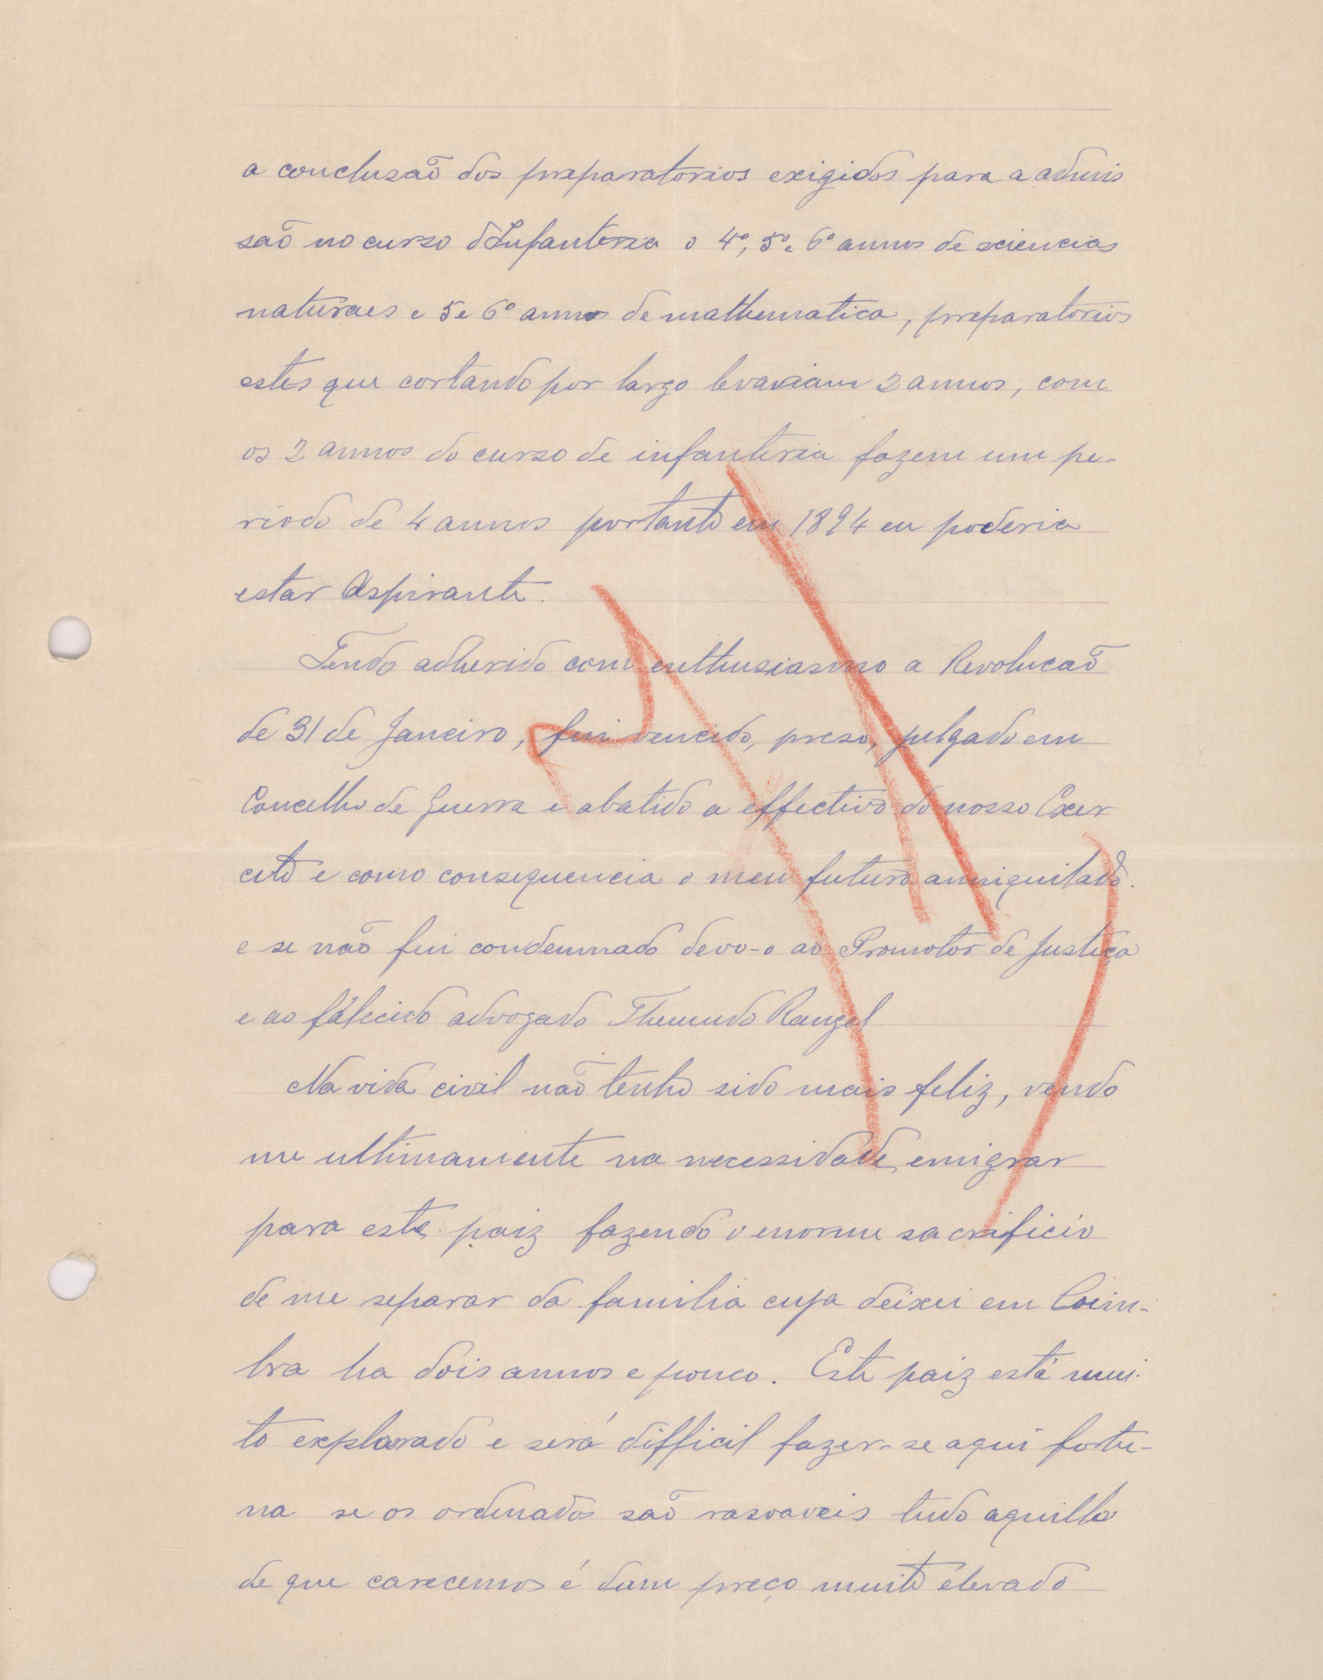 a conclusaõ dos preparatorios exigidos para a admis
saõ no curso d'Infanteria o 4º, 5º e 6º annos de sciencias
naturaes e 5 e 6º annos de mathematica, preparatorios
estes que cortando por largo levariam 2 annos, com
os 2 annos do curso de infanteria fazem um pe-
riodo de 4 annos portanto em 1894 eu poderia
estar Aspirante.
Tendo adherido com enthusiasmo a Revolucaõ
de 31 de Janeiro, fui vencido, preso, julgado em
Concelho de Guerra e abatido a effectivo do nosso Exer
cito e como consequencia o meu futuro anniquilado.
e se naõ fui condemnado devo-o ao Promotor de Justiça
e ao fálecido advogado Themudo Rangel
Na vida civil naõ tenho sido mais feliz, vendo
me ultimamente na necessidade emigrar
para este paiz fazendo o enorme sacrificio
de me separar da familia cuja deixei em Coim-
bra ha dois annos e pouco. Este paiz está mui-
to explorado e será difficil fazer-se aqui fortu-
na se os ordenados saõ rasoaveis tudo aquillo
de que carecemos é dum preço muito elevado